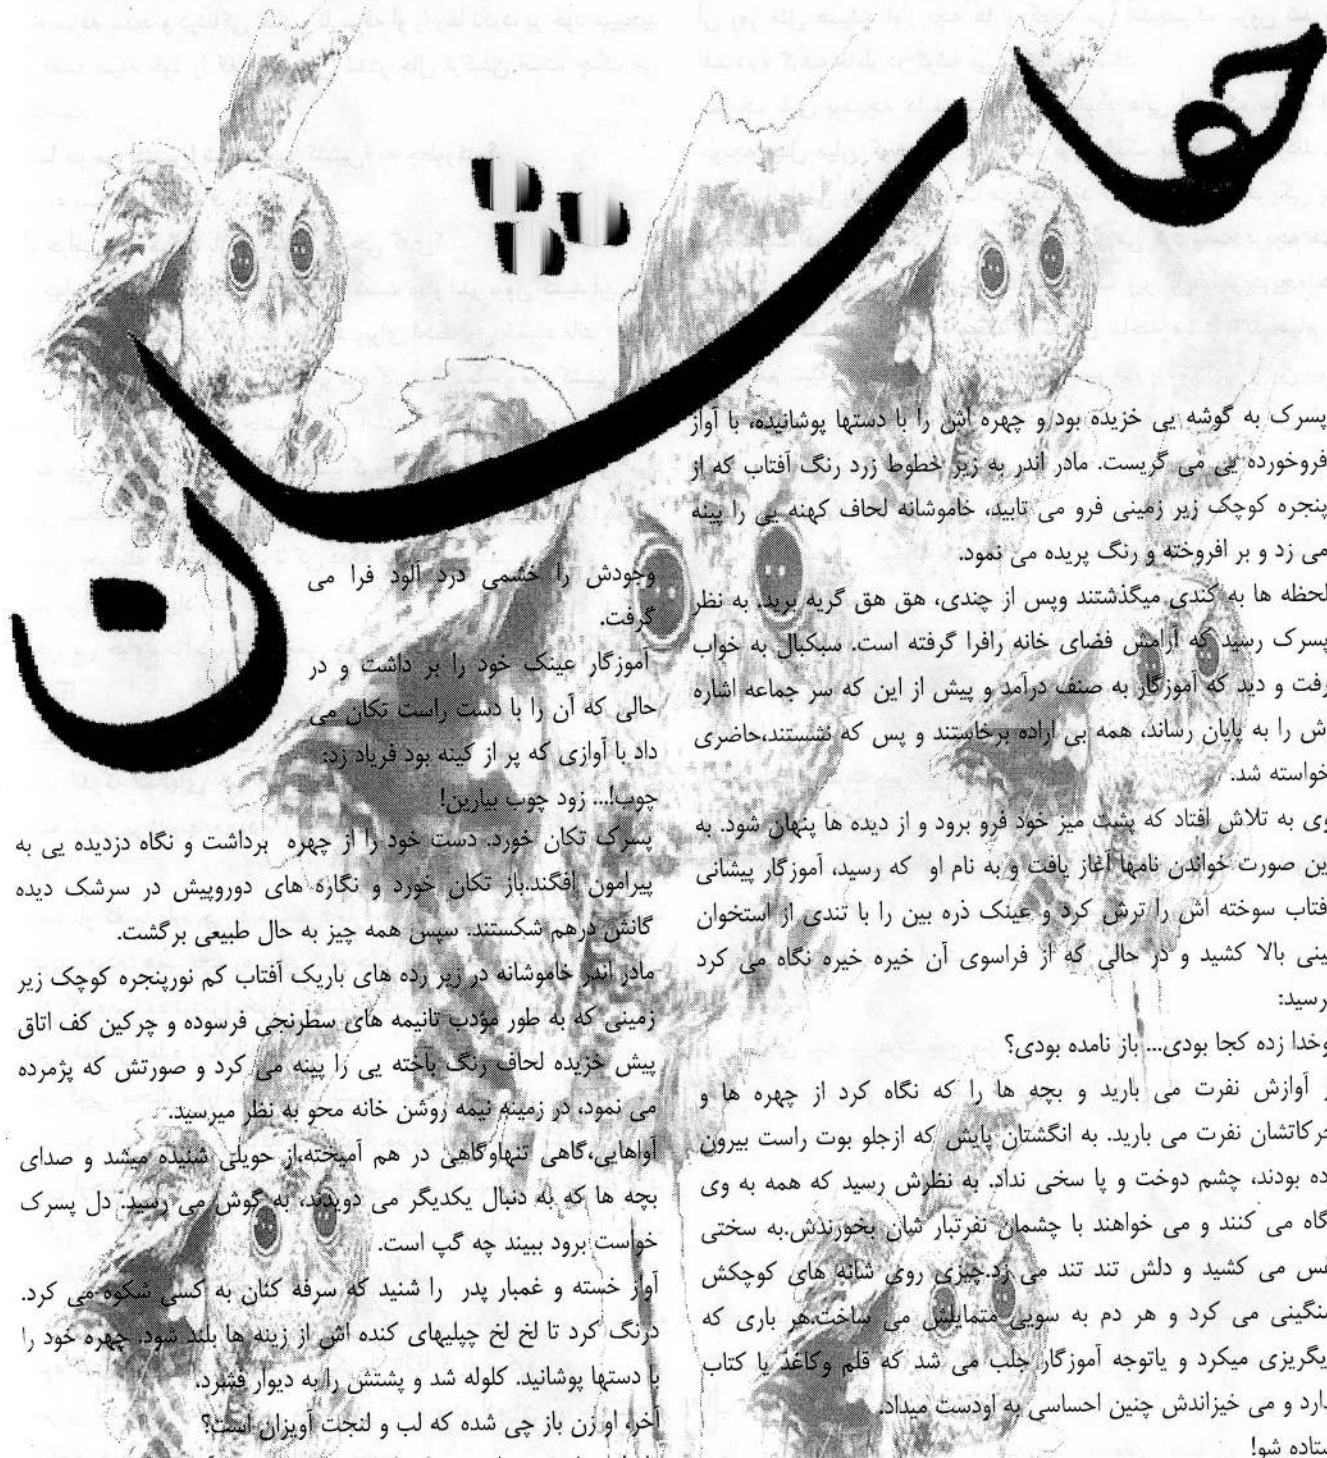 پسرک به گوشه یی خزیده بود و چهره اش را با دستها پوشانیده، با آواز
فروخورده یی می گریست. مادر اندر به زیر خطوط زرد رنگ آفتاب که از
پنجره کوچک زیر زمینی فرو می تابید، خاموشانه لحاف کهنه یی را پینه
می زد و بر افروخته و رنگ پریده می نمود.
لحظه ها به کندی میگذشتند وپس از چندی، هق هق گریه برید. به نظر
پسرک رسید که آرامش فضای خانه رافرا گرفته است. سبکبال به خواب
رفت و دید که آموزگار به صنف درآمد و پیش از این که سر جماعه اشاره
اش را به پایان رساند، همه بی اراده برخاستند و پس که نشستند،حاضری
خواسته شد.
وی به تلاش افتاد که پشت میز خود فرو برود و از دیده ها پنهان شود. به
ین صورت خواندن نامها آغاز یافت و به نام او که رسید، آموزگار پیشانی
فتاب سوخته اش را ترش کرد و عینک ذره بین را با تندی از استخوان
ینی بالا کشید و در حالی که از فراسوی آن خیره خیره نگاه می کرد
رسید:
وخدا زده کجا بودی... باز نامده بودی؟
ز آوازش نفرت می بارید و بچه ها را که نگاه کرد از چهره ها و
حرکاتشان نفرت می بارید. به انگشتان پایش که ازجلو بوت راست بیرون
ده بودند، چشم دوخت و پا سخی نداد. به نظرش رسید که همه به وی
گاه می کنند و می خواهند با چشمان نفرتبار شان بخورندش.به سختی
فس می کشید و دلش تند تند می زد.چیزی روی شانه های کوچکش
نگینی می کرد و هر دم به سویی متمایلش می ساخت.هر باری که
یگریزی میکرد و یاتوجه آموزگار جلب می شد که قلم وکاغذ یا کتاب
دارد و می خیزاندش چنین احساسی به اودست میداد.
ستاده شو!
وجودش را خشمی درد آلود فرا می
گرفت.
آموزگار عینک خود را بر داشت و در
حالی که آن را با دست راست تکان می
داد با آوازی که پر از کینه بود فریاد زد:
چوب!... زود چوب بیارین!
پسرک تکان خورد. دست خود را از چهره برداشت و نگاه دزدیده یی به
پیرامون افگند.باز تکان خورد و نگاره های دوروپیش در سرشک دیده
گانش درهم شکستند. سپس همه چیز به حال طبیعی برگشت.
مادر اندر خاموشانه در زیر رده های باریک آفتاب کم نورپنجره کوچک زیر
زمینی که به طور مؤدب تانیمه های سطرنجی فرسوده و چرکین کف اتاق
پیش خزیده لحاف رنگ باخته یی را پینه می کرد و صورتش که پژمرده
می نمود، در زمینه نیمه روشن خانه محو به نظر میرسید.
آواهایی،گاهی تنهاوگاهی در هم آمیخته،از حویلی شنیده میشد و صدای
بچه ها که به دنبال یکدیگر می دویدند، به گوش می رسید. دل پسرک
خواست برود ببیند چه گپ است.
آواز خسته و غمبار پدر را شنید که سرفه کنان به کسی شکوه می کرد.
درنگ کرد تا لخ لخ چپلیهای کنده اش از زینه ها بلند شود. چهره خود را
با دستها پوشانید. کلوله شد و پشتش را به دیوار فشرد.
آخر، او زن باز چی شده که لب و لنجت آویزان است؟